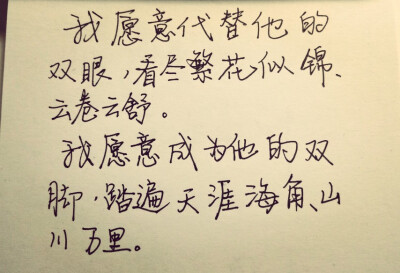 我愿意代替他的
双眼，看尽繁花似锦、
云卷云舒。
我愿意成为他的双
脚，踏遍天涯海角、山
川万里。